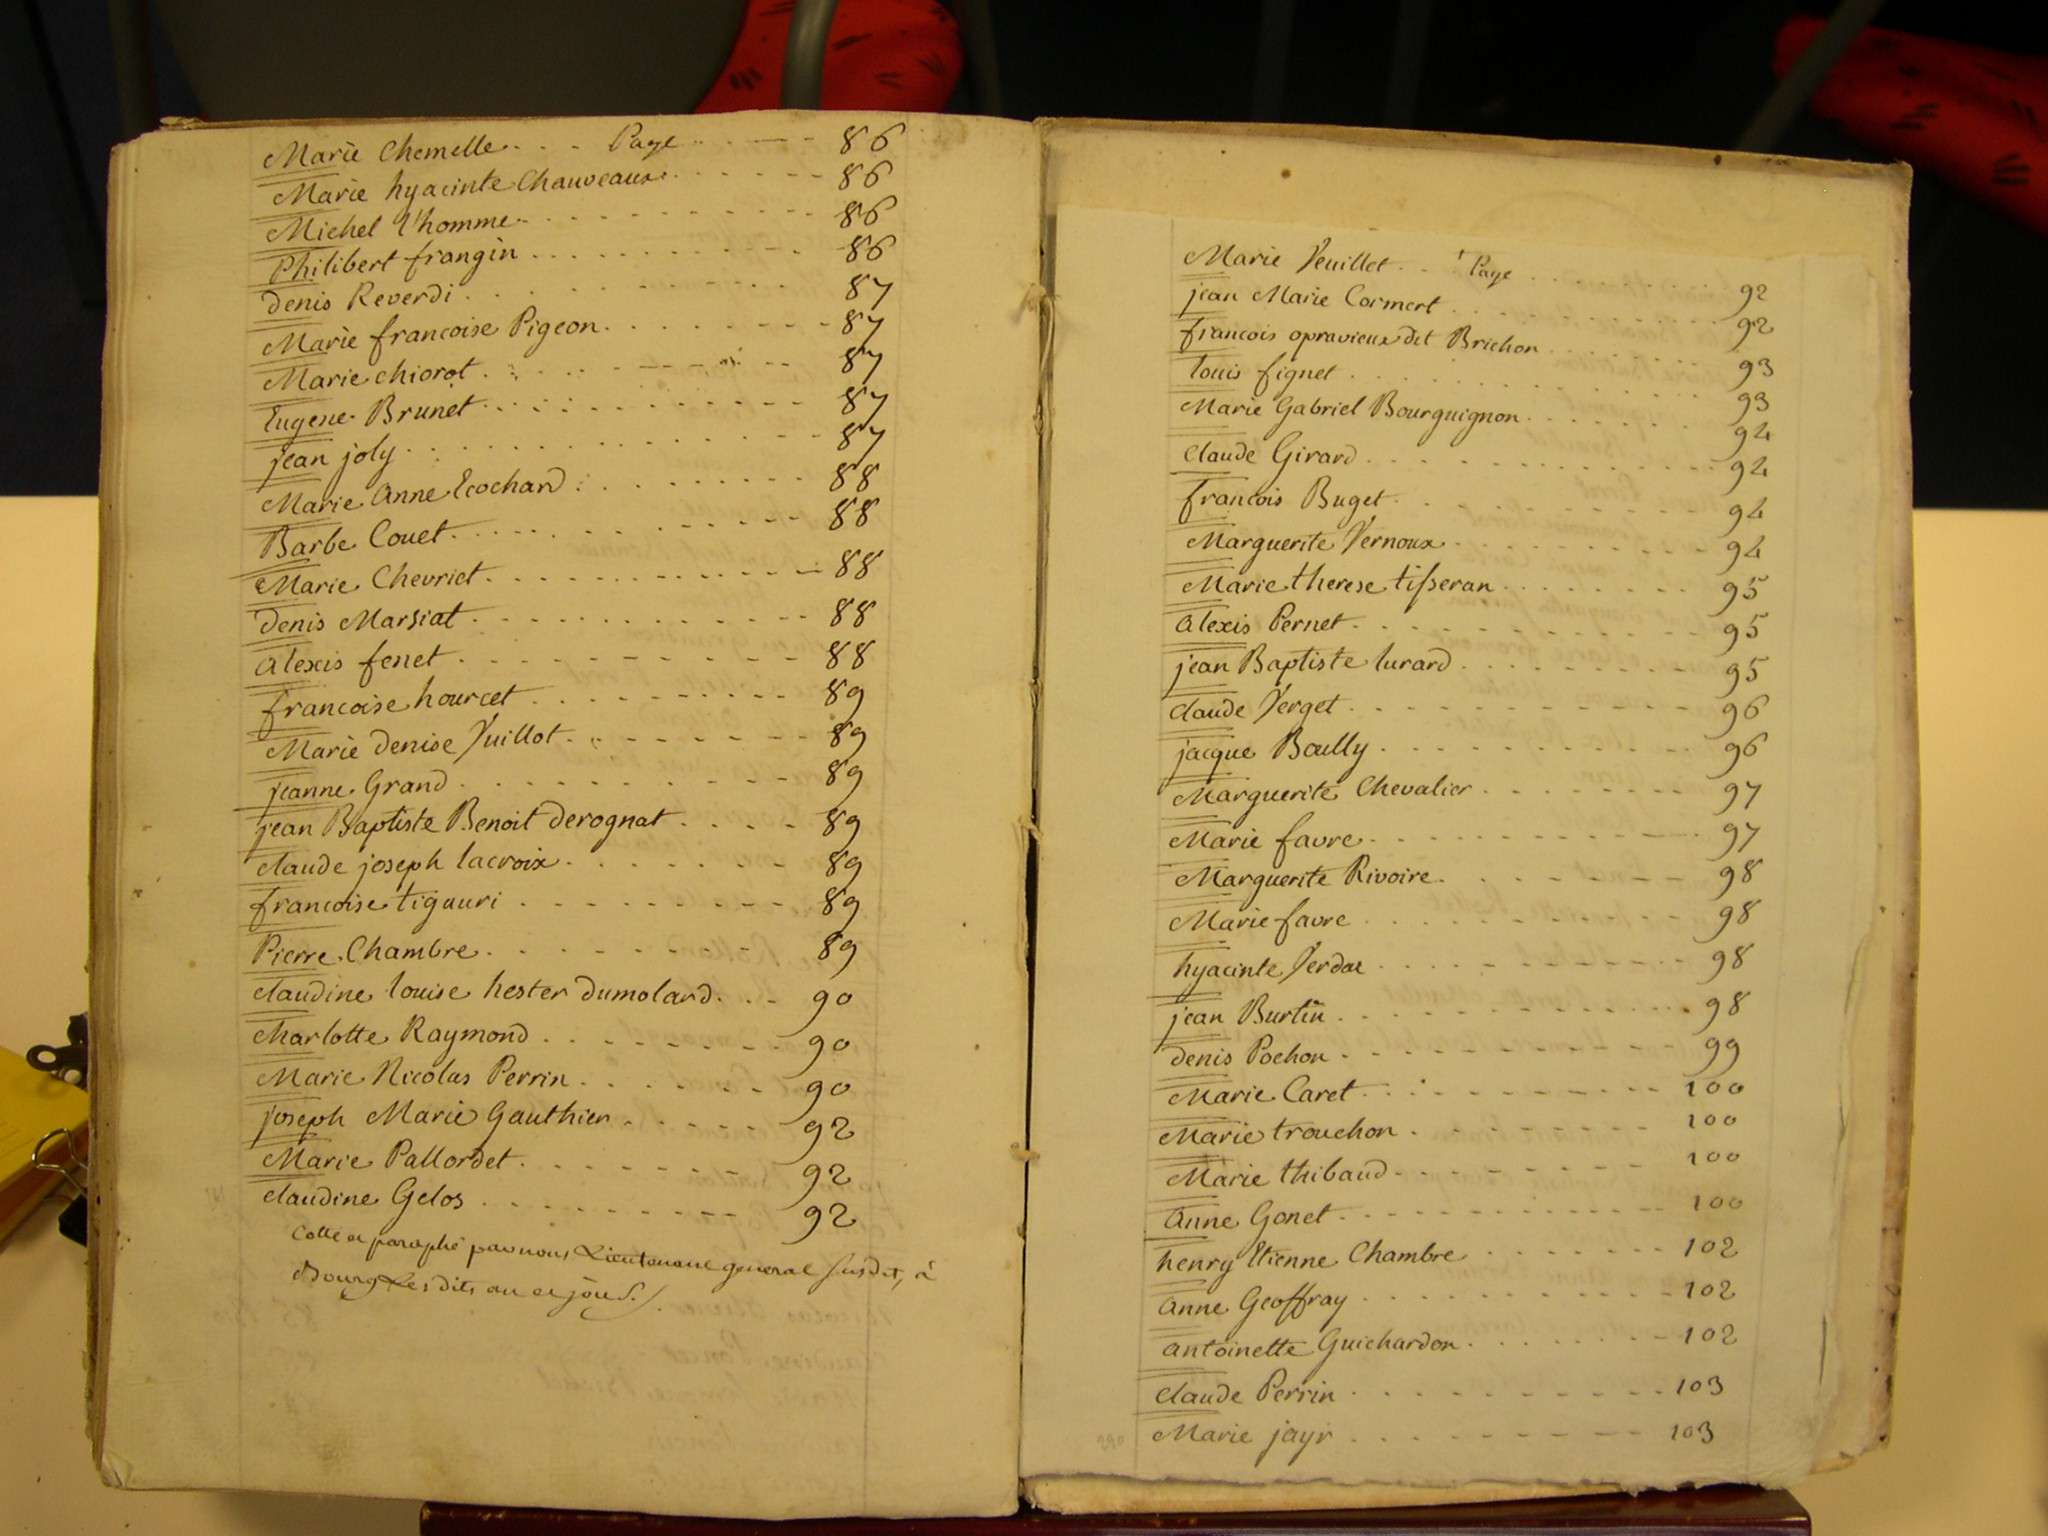 Marie Chemelle . . . Page . . . . . 86
Marie hyacinte Chauveaux . . . . . . . 86
Michel l'homme . . . . . . . . . . 86
Philibert frangin . . . . . . . . . . 86
denis Reverdi . . . . . . . . . . 87
Marie francoise Pigeon . . . . . . . . 87
Marie chiorot . . . . . . . . . . 87
Eugene Brunet . . . . . . . . . . 87
jean joly . . . . . . . . . . . . 87
Marie Anne Ecochard . . . . . . . . 88
Barbe Couet . . . . . . . . . . 88
Marie Chevriet . . . . . . . . . . 88
denis Marsiat . . . . . . . . . . 88
Alexis fenet . . . . . . . . . . 88
francoise hourcet . . . . . . . . 89
Marie denise Vuillot . . . . . . . . 89
jeanne Grand . . . . . . . . . . 89
jean Baptiste Benoit derognat . . . . 89
Claude joseph lacroix . . . . . . . 89
francoise tigauri . . . . . . . . . 89
Pierre Chambre . . . . . . . . . 89
Claudine louise hester dumolard . . . 90
Charlotte Raymond . . . . . . . . 90
Marie Nicolas Perrin . . . . . . . 90
joseph Marie Gauthier . . . . . 92
Marie Pallordet . . . . . . . . 92
Claudine Gelos . . . . . . . . . 92
Cotté et paraphé par nous Lieutenant general susdit, à
Bourg Les dits an et jour
Marie Veuillet . . . Page . . . . . 92
jean Marie Cormort . . . . . . . . . 92
francois opravieux dit Brichon . . . . . 93
louis fignet . . . . . . . . . . 93
Marie Gabriel Bourguignon . . . . . . 94
Claude Girard . . . . . . . . . . 94
francois Buget . . . . . . . . . . 94
Marguerite Vernoux . . . . . . . . . 94
Marie therese tisseran . . . . . . . . 95
Alexis Pernet . . . . . . . . . . 95
jean Baptiste lurard . . . . . . . . 95
Claude Verget . . . . . . . . . . 96
jacque Boully . . . . . . . . . . 96
Marguerite Chevalier . . . . . . . . 97
Marie favre . . . . . . . . . . 97
Marguerite Rivoire . . . . . . . . 98
Marie favre . . . . . . . . . . 98
hyacinte Verdat . . . . . . . . . 98
jean Burtin . . . . . . . . . . 98
denis Pochon . . . . . . . . . . 99
Marie Caret . . . . . . . . . . 100
Marie trouchon . . . . . . . . . 100
Marie thibaud . . . . . . . . . 100
Anne Gonet . . . . . . . . . . 100
henry Etienne Chambre . . . . . . 102
Anne Geoffray . . . . . . . . . 102
Antoinette Guichardon . . . . . . 102
Claude Perrin . . . . . . . . . 103
Marie jayr . . . . . . . . . . 103